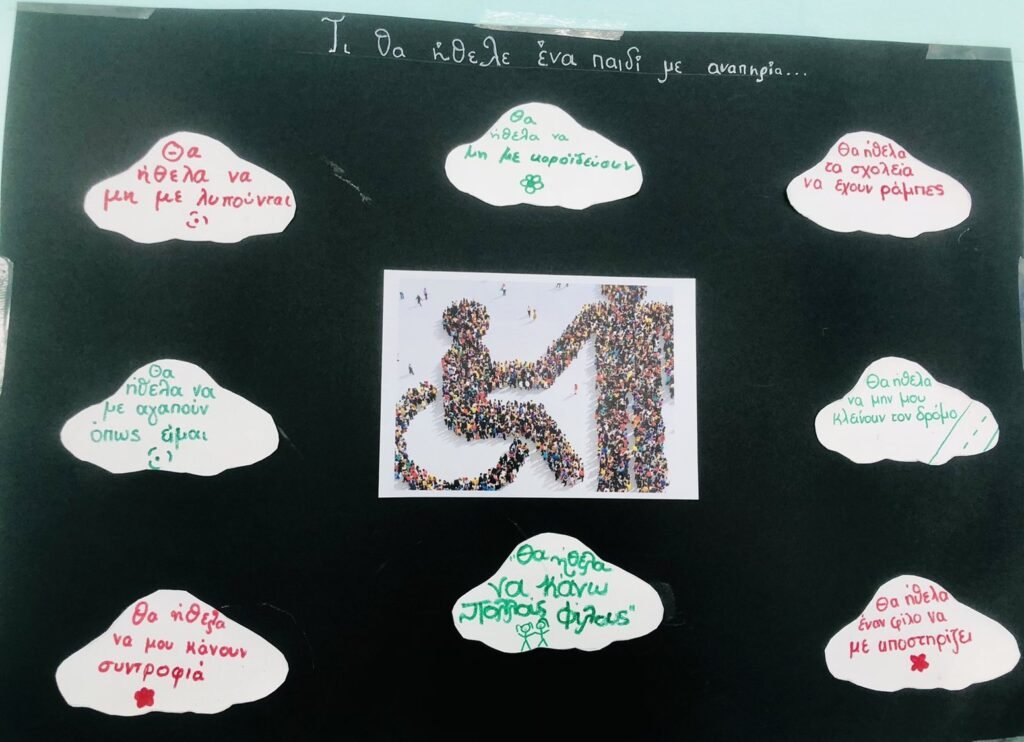 Τι θα ήθελε ένα παιδί με αναπηρία...
Θα
ήθελα να
μη με λυπούνται
Θα
ήθελα να
μη με κοροϊδεύουν
Θα ήθελα
τα σχολεία
να έχουν ράμπες
Θα
ήθελα να
με αγαπούν
όπως είμαι
Θα ήθελα
να μην μου
κλείνουν τον δρόμο
Θα ήθελα
να μου κάνουν
συντροφιά
"Θα ήθελα
να κάνω
πολλούς φίλους"
Θα ήθελα
έναν φίλο να
με υποστηρίζει